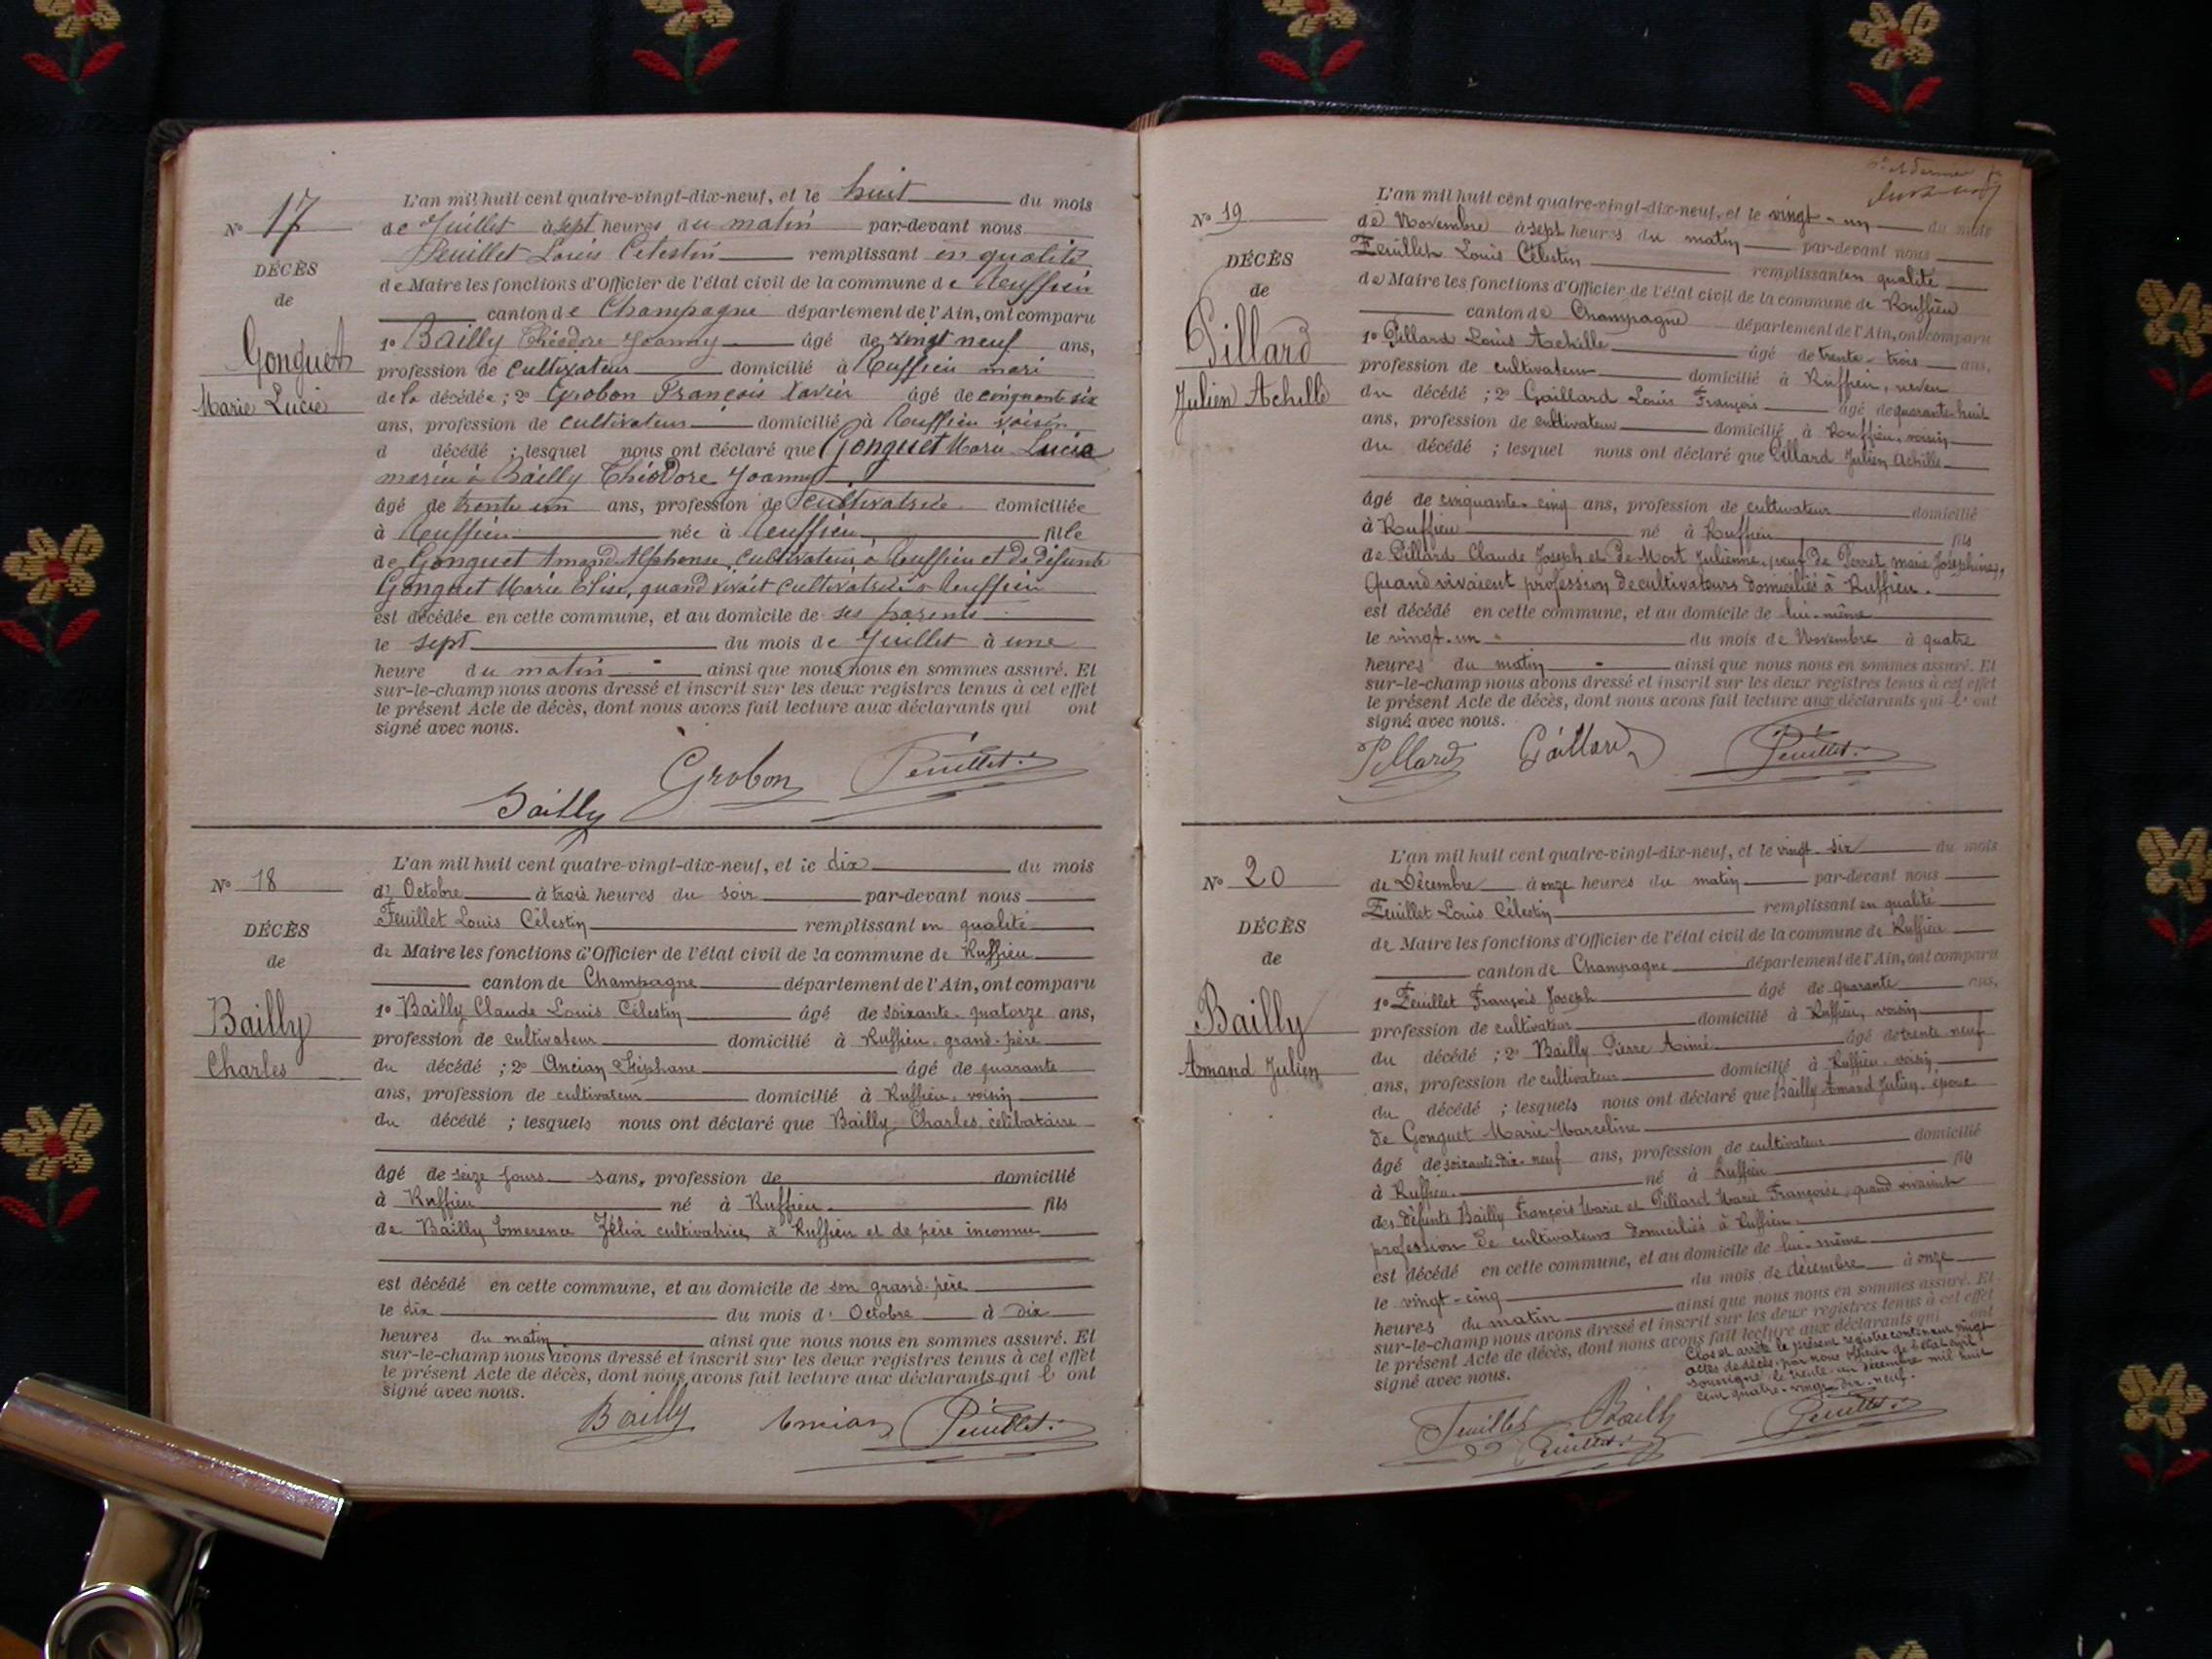 N° 17
DÉCÈS
de
Gonguet
Marie Lucie
L'an mil huit cent quatre-vingt-dix-neuf, et le huit du mois
de Juillet à sept heures du matin par-devant nous
Feuillet Louis Célestin remplissant en qualité
de Maire les fonctions d'Officier de l'état civil de la commune de Ruffieu
canton de Champagne département de l'Ain, ont comparu
1° Bailly Théodore Joanny âgé de vingt neuf ans,
profession de cultivateur domicilié à Ruffieu mari
de la décédée ; 2° Grobon François Xavier âgé de cinquante six
ans, profession de cultivateur domicilié à Ruffieu voisin
d décédé ; lesquel nous ont déclaré que Gonguet Marie Lucie
mariée à Bailly Théodore Joanny
âgé de trente un ans, profession de cultivatrice domiciliée
à Ruffieu née à Ruffieu fille
de Gonguet Amand Alphonse, cultivateur à Ruffieu et de défunte
Gonguet Marie Élise, quand vivait cultivatrice à Ruffieu
est décédée en cette commune, et au domicile de ses parents
le sept du mois de Juillet à une
heure du matin ainsi que nous nous en sommes assuré. Et
sur-le-champ nous avons dressé et inscrit sur les deux registres tenus à cet effet
le présent Acte de décès, dont nous avons fait lecture aux déclarants qui ont
signé avec nous.
Bailly Grobon Feuillet
N° 18
DÉCÈS
de
Bailly
Charles
L'an mil huit cent quatre-vingt-dix-neuf, et le dix du mois
d' Octobre à trois heures du soir par-devant nous
Feuillet Louis Célestin remplissant en qualité
de Maire les fonctions d'Officier de l'état civil de la commune de Ruffieu
canton de Champagne département de l'Ain, ont comparu
1° Bailly Claude Louis Célestin âgé de soixante-quatorze ans,
profession de cultivateur domicilié à Ruffieu, grand-père
du décédé ; 2° Ancian Stéphane âgé de quarante
ans, profession de cultivateur domicilié à Ruffieu, voisin
du décédé ; lesquels nous ont déclaré que Bailly Charles, célibataire
âgé de seize jours sans, profession de domicilié
à Ruffieu né à Ruffieu fils
de Bailly Emerence Zélia cultivatrice, à Ruffieu et de père inconnu
est décédé en cette commune, et au domicile de son grand-père
le dix du mois d' Octobre à dix
heures du matin ainsi que nous nous en sommes assuré. Et
sur-le-champ nous avons dressé et inscrit sur les deux registres tenus à cet effet
le présent Acte de décès, dont nous avons fait lecture aux déclarants qui l' ont
signé avec nous.
Bailly Ancian Feuillet
N° 19
DÉCÈS
de
Pillard
Julien Achille
L'an mil huit cent quatre-vingt-dix-neuf, et le vingt-un du mois
de Novembre à sept heures du matin par-devant nous
Feuillet Louis Célestin remplissant en qualité
de Maire les fonctions d'Officier de l'état civil de la commune de Ruffieu
canton de Champagne département de l'Ain, ont comparu
1° Pillard Louis Achille âgé de trente-trois ans,
profession de cultivateur domicilié à Ruffieu, neveu
du décédé ; 2° Gaillard Louis François âgé de quarante-huit
ans, profession de cultivateur domicilié à Ruffieu, voisin
du décédé ; lesquel nous ont déclaré que Pillard Julien Achille
âgé de cinquante-cinq ans, profession de cultivateur domicilié
à Ruffieu né à Ruffieu fils
de Pillard Claude Joseph et de Mort Julienne, veuf de Perret marie Joséphine,
Quand vivaient profession de cultivateurs domiciliés à Ruffieu.
est décédé en cette commune, et au domicile de lui-même
le vingt-un du mois de Novembre à quatre
heures du matin ainsi que nous nous en sommes assuré. Et
sur-le-champ nous avons dressé et inscrit sur les deux registres tenus à cet effet
le présent Acte de décès, dont nous avons fait lecture aux déclarants qui l' ont
signé avec nous.
Pillard Gaillard Feuillet
N° 20
DÉCÈS
de
Bailly
Amand Julien
L'an mil huit cent quatre-vingt-dix-neuf, et le vingt-six du mois
de Décembre à onze heures du matin par-devant nous
Feuillet Louis Célestin remplissant en qualité
de Maire les fonctions d'Officier de l'état civil de la commune de Ruffieu
canton de Champagne département de l'Ain, ont comparu
1° Feuillet François Joseph âgé de quarante ans,
profession de cultivateur domicilié à Ruffieu, voisin
du décédé ; 2° Bailly Pierre Aimé âgé de trente neuf
ans, profession de cultivateur domicilié à Ruffieu, voisin
du décédé ; lesquels nous ont déclaré que Bailly Amand Julien, époux
de Gonguet Marie Marceline
âgé de soixante-dix-neuf ans, profession de cultivateur domicilié
à Ruffieu né à Ruffieu fils
des défunts Bailly François Marie et Pillard Marie Françoise, quand vivaient
profession de cultivateurs domiciliés à Ruffieu.
est décédé en cette commune, et au domicile de lui-même
le vingt-cinq du mois de décembre à onze
heures du matin ainsi que nous nous en sommes assuré. Et
sur-le-champ nous avons dressé et inscrit sur les deux registres tenus à cet effet
le présent Acte de décès, dont nous avons fait lecture aux déclarants qui ont
signé avec nous.
Clos et arrêté le présent registre contenant vingt
actes de décès, par nous officier de l'état civil
soussigné le trente-un décembre mil huit
cent quatre-vingt-dix-neuf.
Feuillet Bailly Feuillet
Feuillet